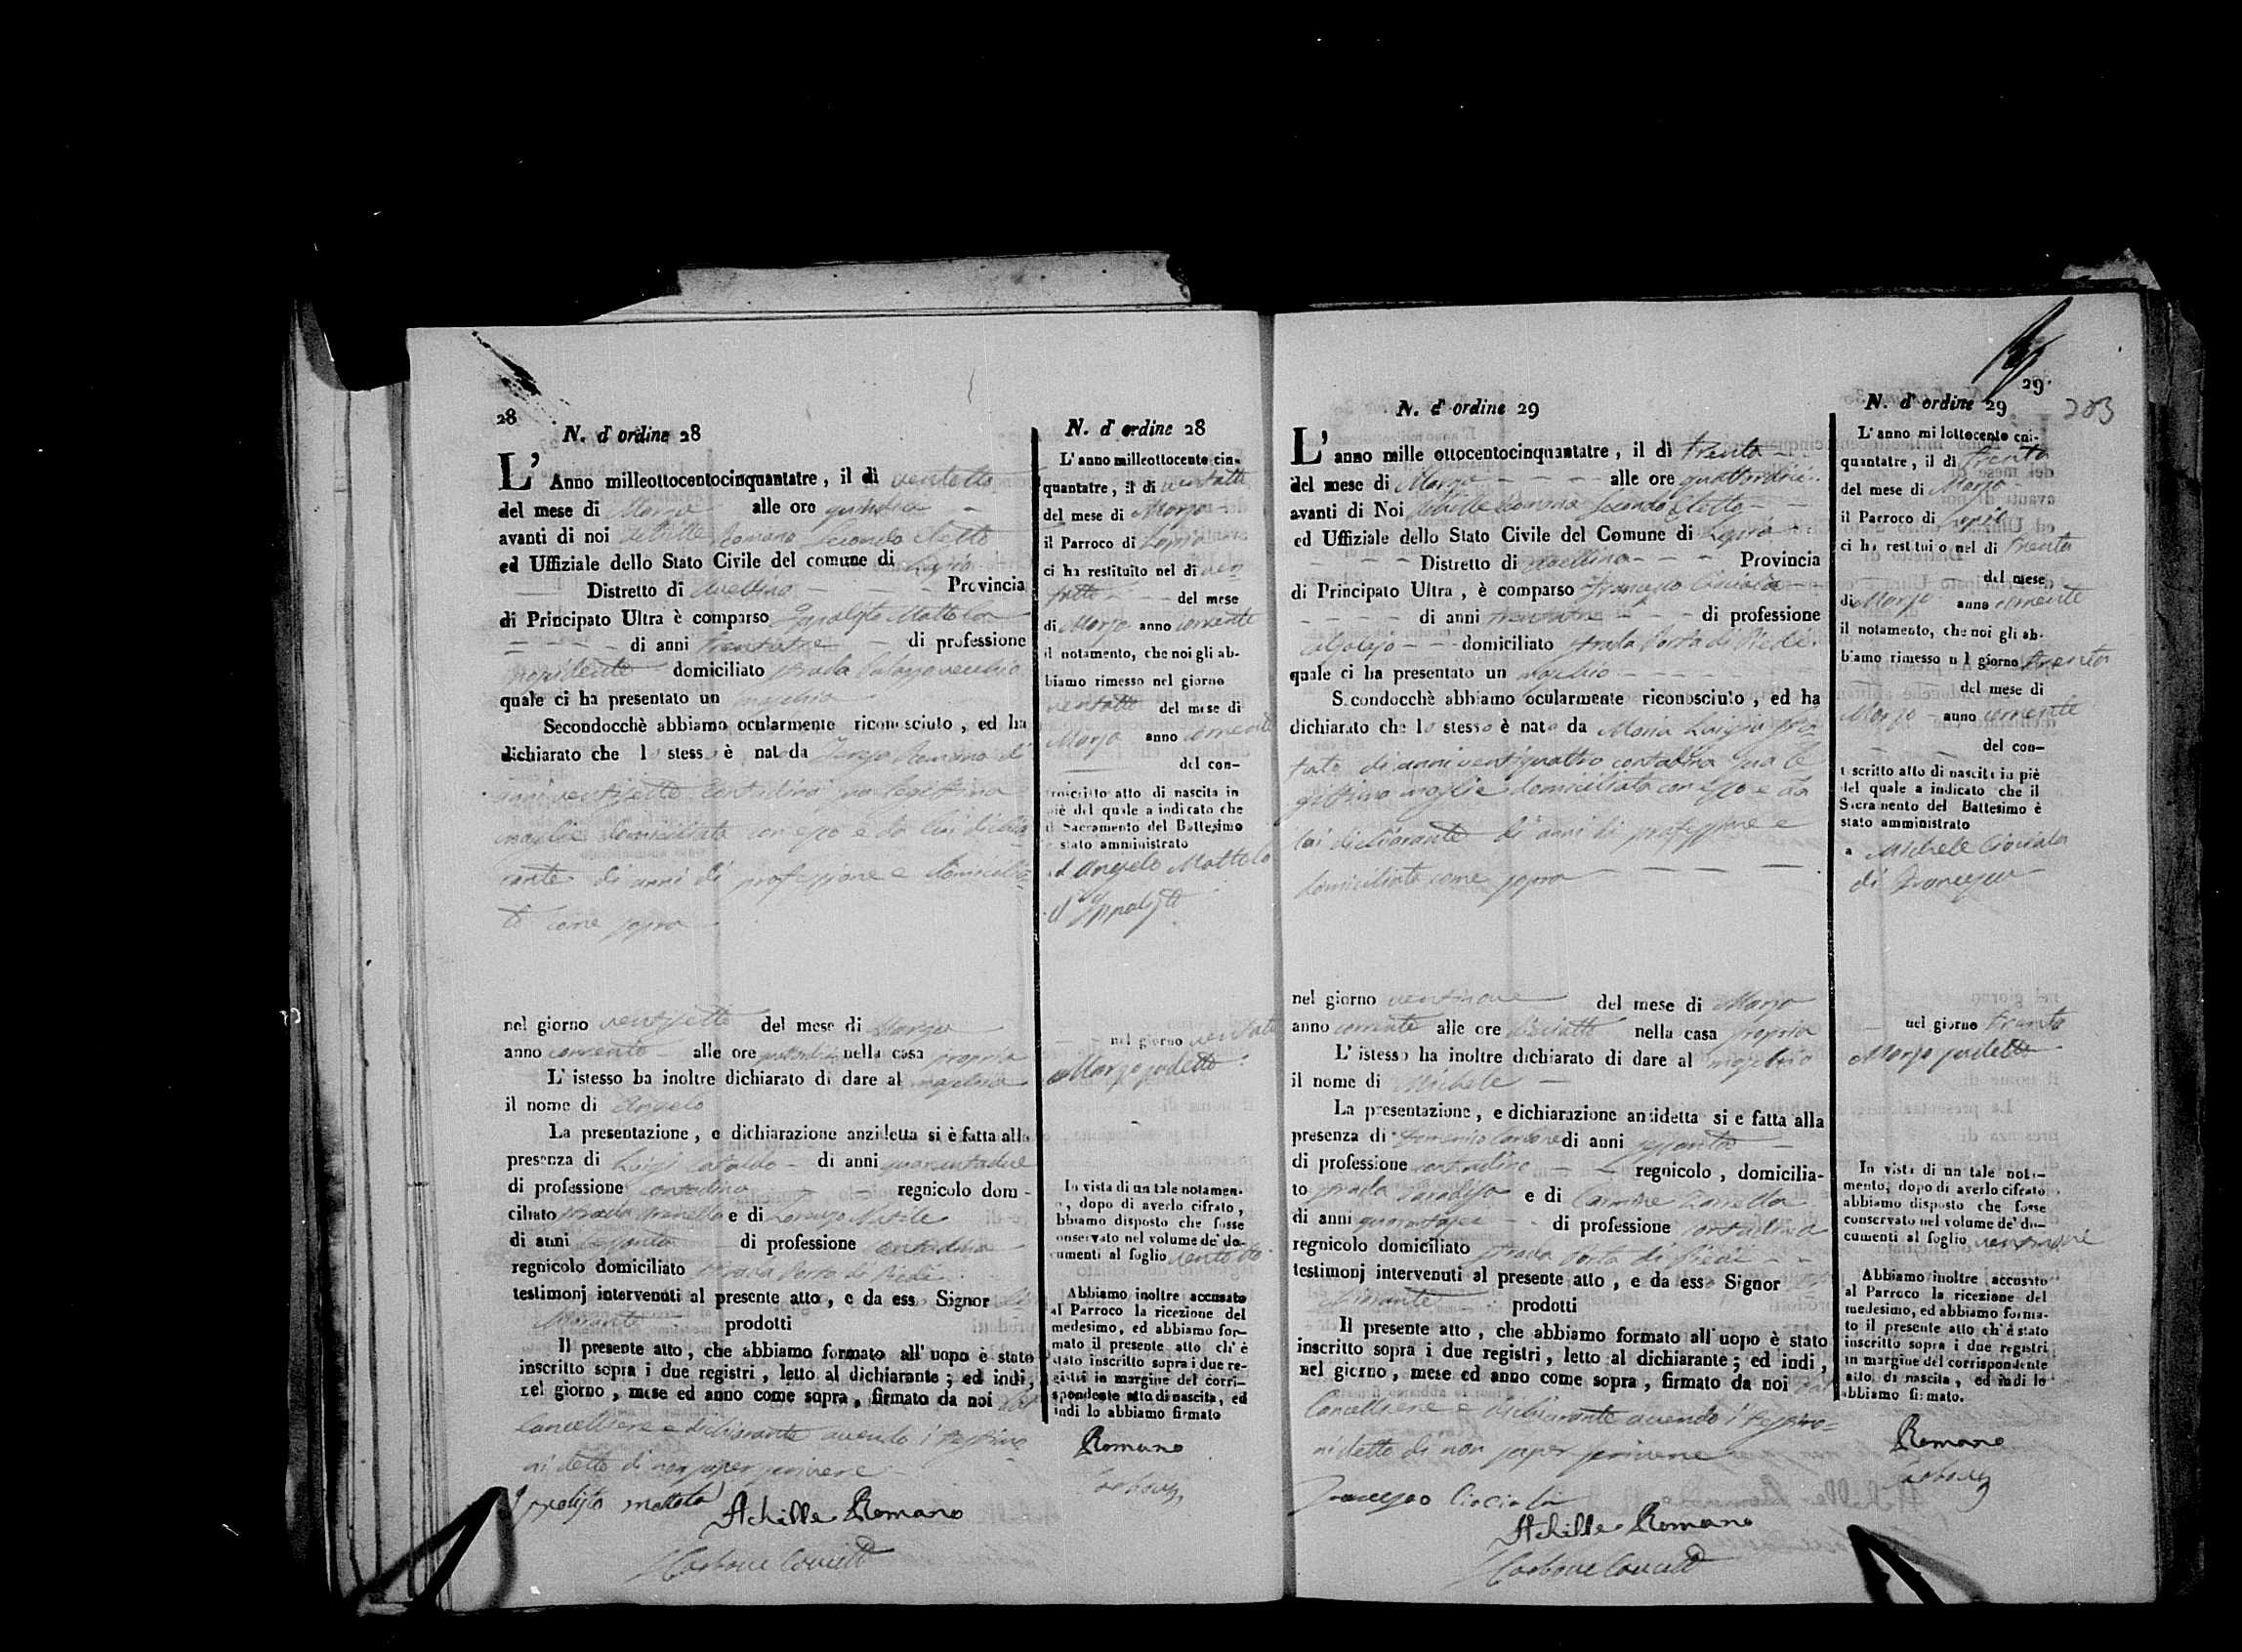 28
N. d' ordine 28
L' Anno milleottocentocinquantatre , il di ventotto
del mese di Marzo alle ore quindici
avanti di noi Achille Romano Secondo Eletto
ed Uffiziale dello Stato Civile del comune di
Distretto di Avellino Provincia
di Principato Ultra è comparso Ippolisto Mattola
di anni trentatre di professione
domiciliato strada Palazzo vecchio
quale ci ha presentato un maschio
Secondocchè abbiamo ocularmente riconosciuto , ed ha
dichiarato che lo stesso è nato da Romano di
anni ventisette contadina sua legittima
moglie domiciliata con esso e da lui dichia
rante di anni di professione e domicilia
to come sopra
nel giorno ventisette del mese di Marzo
anno corrente alle ore nella casa propria
L' istesso ha inoltre dichiarato di dare al maschio
il nome di Angelo
La presentazione , e dichiarazione anzidetta si è fatta alla
presenza di Luigi Cataldo di anni quarantadue
di professione contadino regnicolo dom -
ciliato strada e di Lorenzo
di anni sessanta di professione contadino
regnicolo domiciliato strada Porta di Piedi
testimonj intervenuti al presente atto , e da ess Signor
prodotti
Il presente atto , che abbiamo formato all' uopo è stato
inscritto sopra i due registri , letto al dichiarante ; ed indi,
nel giorno , mese ed anno come sopra , firmato da noi dal
Cancelliere e dichiarante avendo i testimo
ni detto di non saper scrivere
Ippolisto Mattola
Achille Romano
Carbone
N. d' ordine 28
L' anno milleottocento cin-
quantatre , il di ventotto
del mese di Marzo
il Parroco di
ci ha restituito nel di ven
totto del mese
di Marzo anno corrente
il notamento, che noi gli ab-
biamo rimesso nel giorno
ventotto del mese di
Marzo anno corrente
del con-
troscritto atto di nascita in
piè del quale a indicato che
il Sacramento del Battesimo
è stato amministrato
ad Angelo Mattola
d' Ippolisto
nel giorno ventotto
Marzo sudetto
In vista di un tale notamen-
to, dopo di averlo cifrato ,
abbiamo disposto che fosse
conservato nel volume de' do-
cumenti al foglio ventotto
Abbiamo inoltre accusato
al Parroco la ricezione del
medesimo, ed abbiamo for-
mato il presente atto ch' è
stato inscritto sopra i due re-
gistri in margine del corri-
spondente atto di nascita, ed
indi lo abbiamo firmato
Romano
Carbone
29
203
N. d' ordine 29
L' anno mille ottocentocinquantatre , il di trenta
del mese di Marzo alle ore quattordici
avanti di Noi Achille Romano Secondo Eletto
ed Uffiziale dello Stato Civile del Comune di
Distretto di Avellino Provincia
di Principato Ultra , è comparso Francesco Ciociola
di anni trentatre di professione
Calzolajo domiciliato strada Porta di Piedi
quale ci ha presentato un maschio
Secondocchè abbiamo ocularmente riconosciuto , ed ha
dichiarato che lo stesso è nato da Maria Luigia
di anni ventiquattro contadina sua le
gittima moglie domiciliata con esso e da
lui dichiarante di anni di professione e
domiciliato come sopra
nel giorno ventinove del mese di Marzo
anno corrente alle ore nella casa propria
L' istesso ha inoltre dichiarato di dare al maschio
il nome di Michele
La presentazione , e dichiarazione anzidetta si e fatta alla
presenza di Domenico Carbone di anni sessanta
di professione contadino regnicolo , domicilia-
to strada Paradiso e di Carmine
di anni di professione contadino
regnicolo domiciliato strada Porta di Piedi
testimonj intervenuti al presente atto , e da esso Signor
prodotti
Il presente atto , che abbiamo formato all' uopo è stato
inscritto sopra i due registri , letto al dichiarante ; ed indi ,
nel giorno , mese ed anno come sopra , firmato da noi dal
Cancelliere e dichiarante avendo i testimo=
ni detto di non saper scrivere
Francesco Ciociola
Achille Romano
Carbone
N. d' ordine 29
L' anno mi lottocento cni-
quantatre , il di trenta
del mese di Marzo
il Parroco di
ci ha restituio nel di trenta
del mese
di Marzo anno corrente
il notamento, che noi gli ab-
biamo rimesso nel giorno trenta
del mese di
Marzo anno corrente
del con-
troscritto atto di nascita in piè
del quale a indicato che il
Sacramento del Battesimo è
stato amministrato
a Michele Ciociola
di Francesco
nel giorno trenta
Marzo sudetto
In vista di un tale nota-
mento, dopo di averlo cifrato ,
abbiamo disposto che fosse
conservato nel volume de' do-
cumenti al foglio ventinove
Abbiamo inoltre accusato
al Parroco la ricezione del
medesimo, ed abbiamo forma-
to il presente atto ch' è stato
inscritto sopra i due registri
in margine del corrispondente
atto di nascita, ed indi lo
abbiamo firmato.
Romano
Carbone